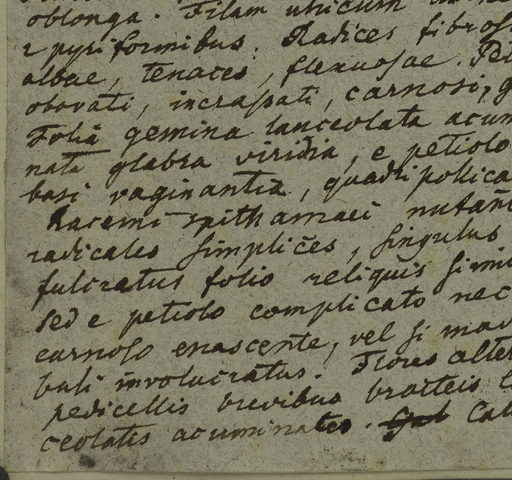 oblonga. Filam utricum
2 pyriformibus. Radices fibros
albae, tenaces, flexuosae. Pe
obovati, incrassati, carnosi, g
Folia gemina lanceolata acum
nata glabra viridia, e petiolo
basi vaginantia, quadripollica
Racemi spithamaei nutan
radicales simplices, singulus
fulcratus folio reliquis simi
sed e petiolo complicato nec
carnoso enascente, vel si mav
buli involucratus. Flores alter
pedicellis brevibus bracteis l
ceolatis acuminatis. Cal